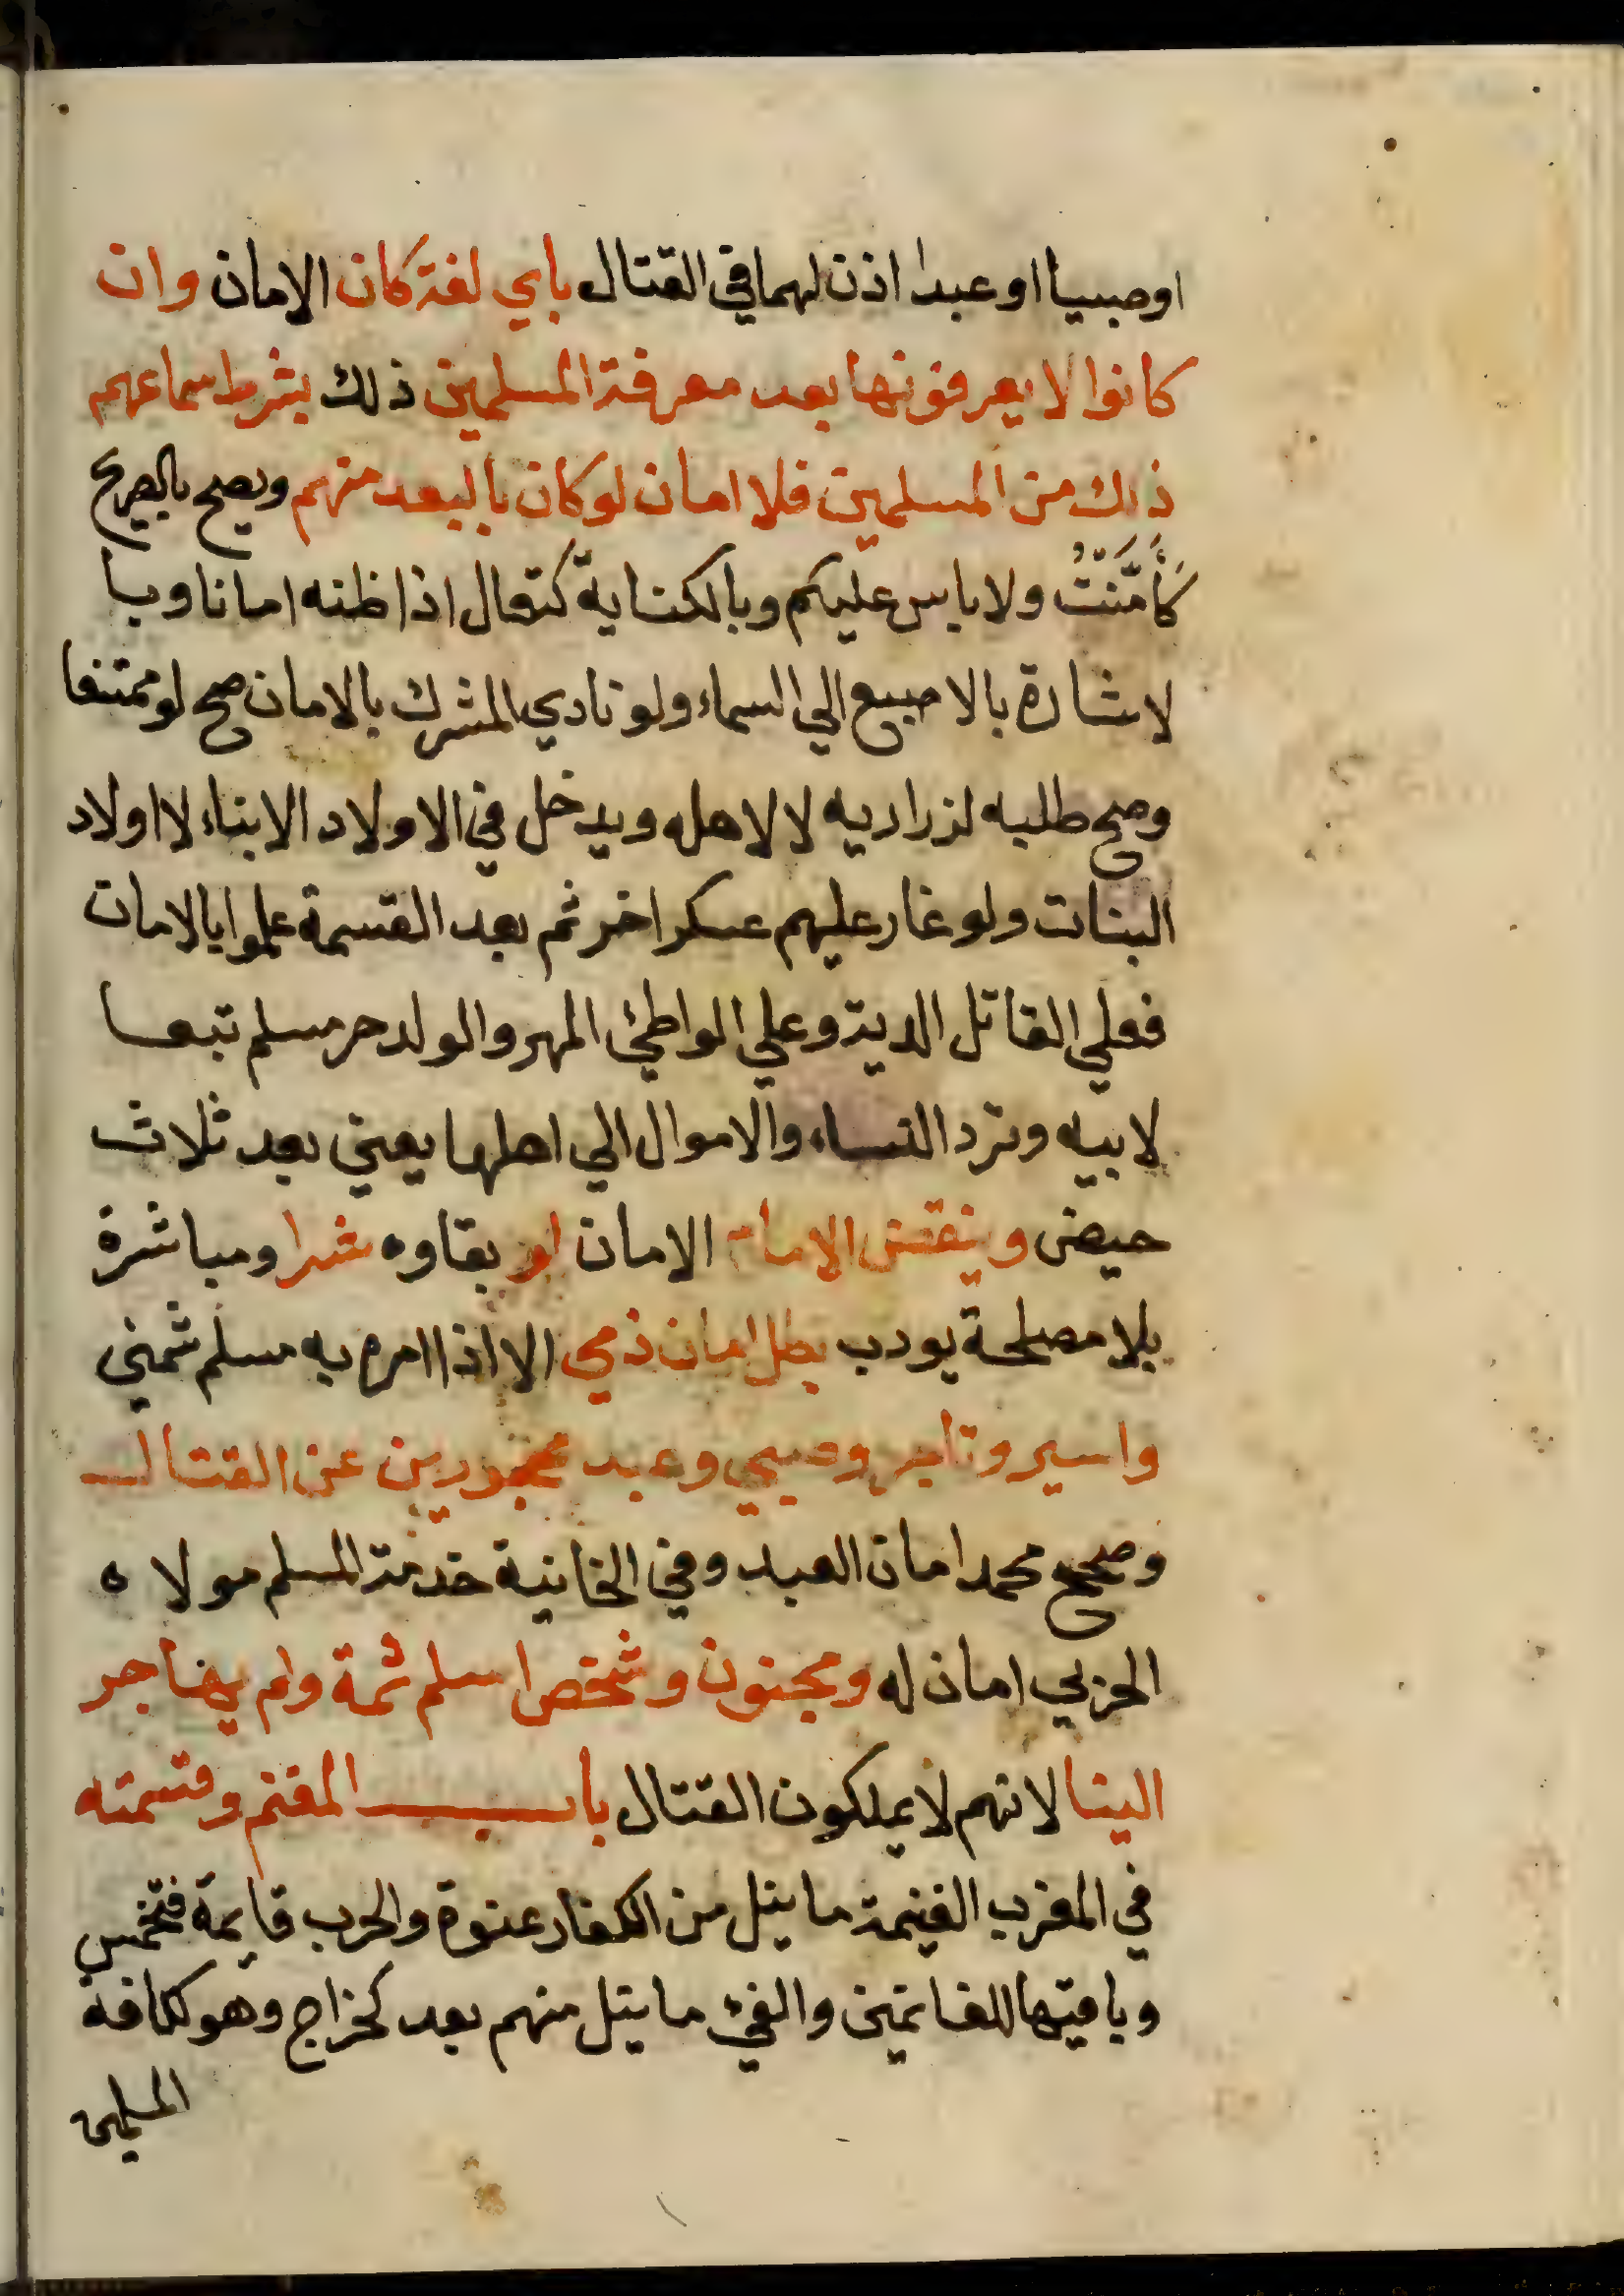 اوصبيا اوعبدا اذن لهما في القتال باي لغة كان الامان وان
كانوا لا يعرفونها بعد معرفة المسلمين ذلك بشرط سماعهم
ذلك من المسلمين فلا امان لو كان بالبعد منهم ويصح بالصريح
كَأَمَّنْتُ ولا باس عليكم وبالكناية كتعال اذا ظنه امانا وبا
لاشارة بالاصبع الي السماء ولو نادي المشرك بالامان صح لو ممتنعا
وصح طلبه لذراريه لا لاهله ويدخل في الاولاد الابناء لا اولاد
البنات ولو غار عليهم عسكر اخر ثم بعد القسمة علموا بالامان
فعلي القاتل الدية وعلي الواطئ المهر والولد حر مسلم تبعا
لابيه وترد النساء والاموال الي اهلها يعني بعد ثلاث
حيض وينقض الامام الامان لو بقاوه شرا ومباشرة
بلا مصلحة يودب بطل امان ذمي الا اذا امره به مسلم شمني
واسير وتاجر وصبي وعبد محجورين عن القتال
وصحح محمد امان العبد وفي الخانية خدمة المسلم مولاه
الحربي امان له ومجنون وشخص اسلم ثمة ولم يهاجر
الينا لانهم لا يملكون القتال باب المغنم وقسمته
في المغرب الغنيمة ما ينل من الكفار عنوة والحرب قايمة فتخمس
وباقيها للغانمين والفئ ما ينل منهم بعد كخراج وهو لكافة
المسلمين